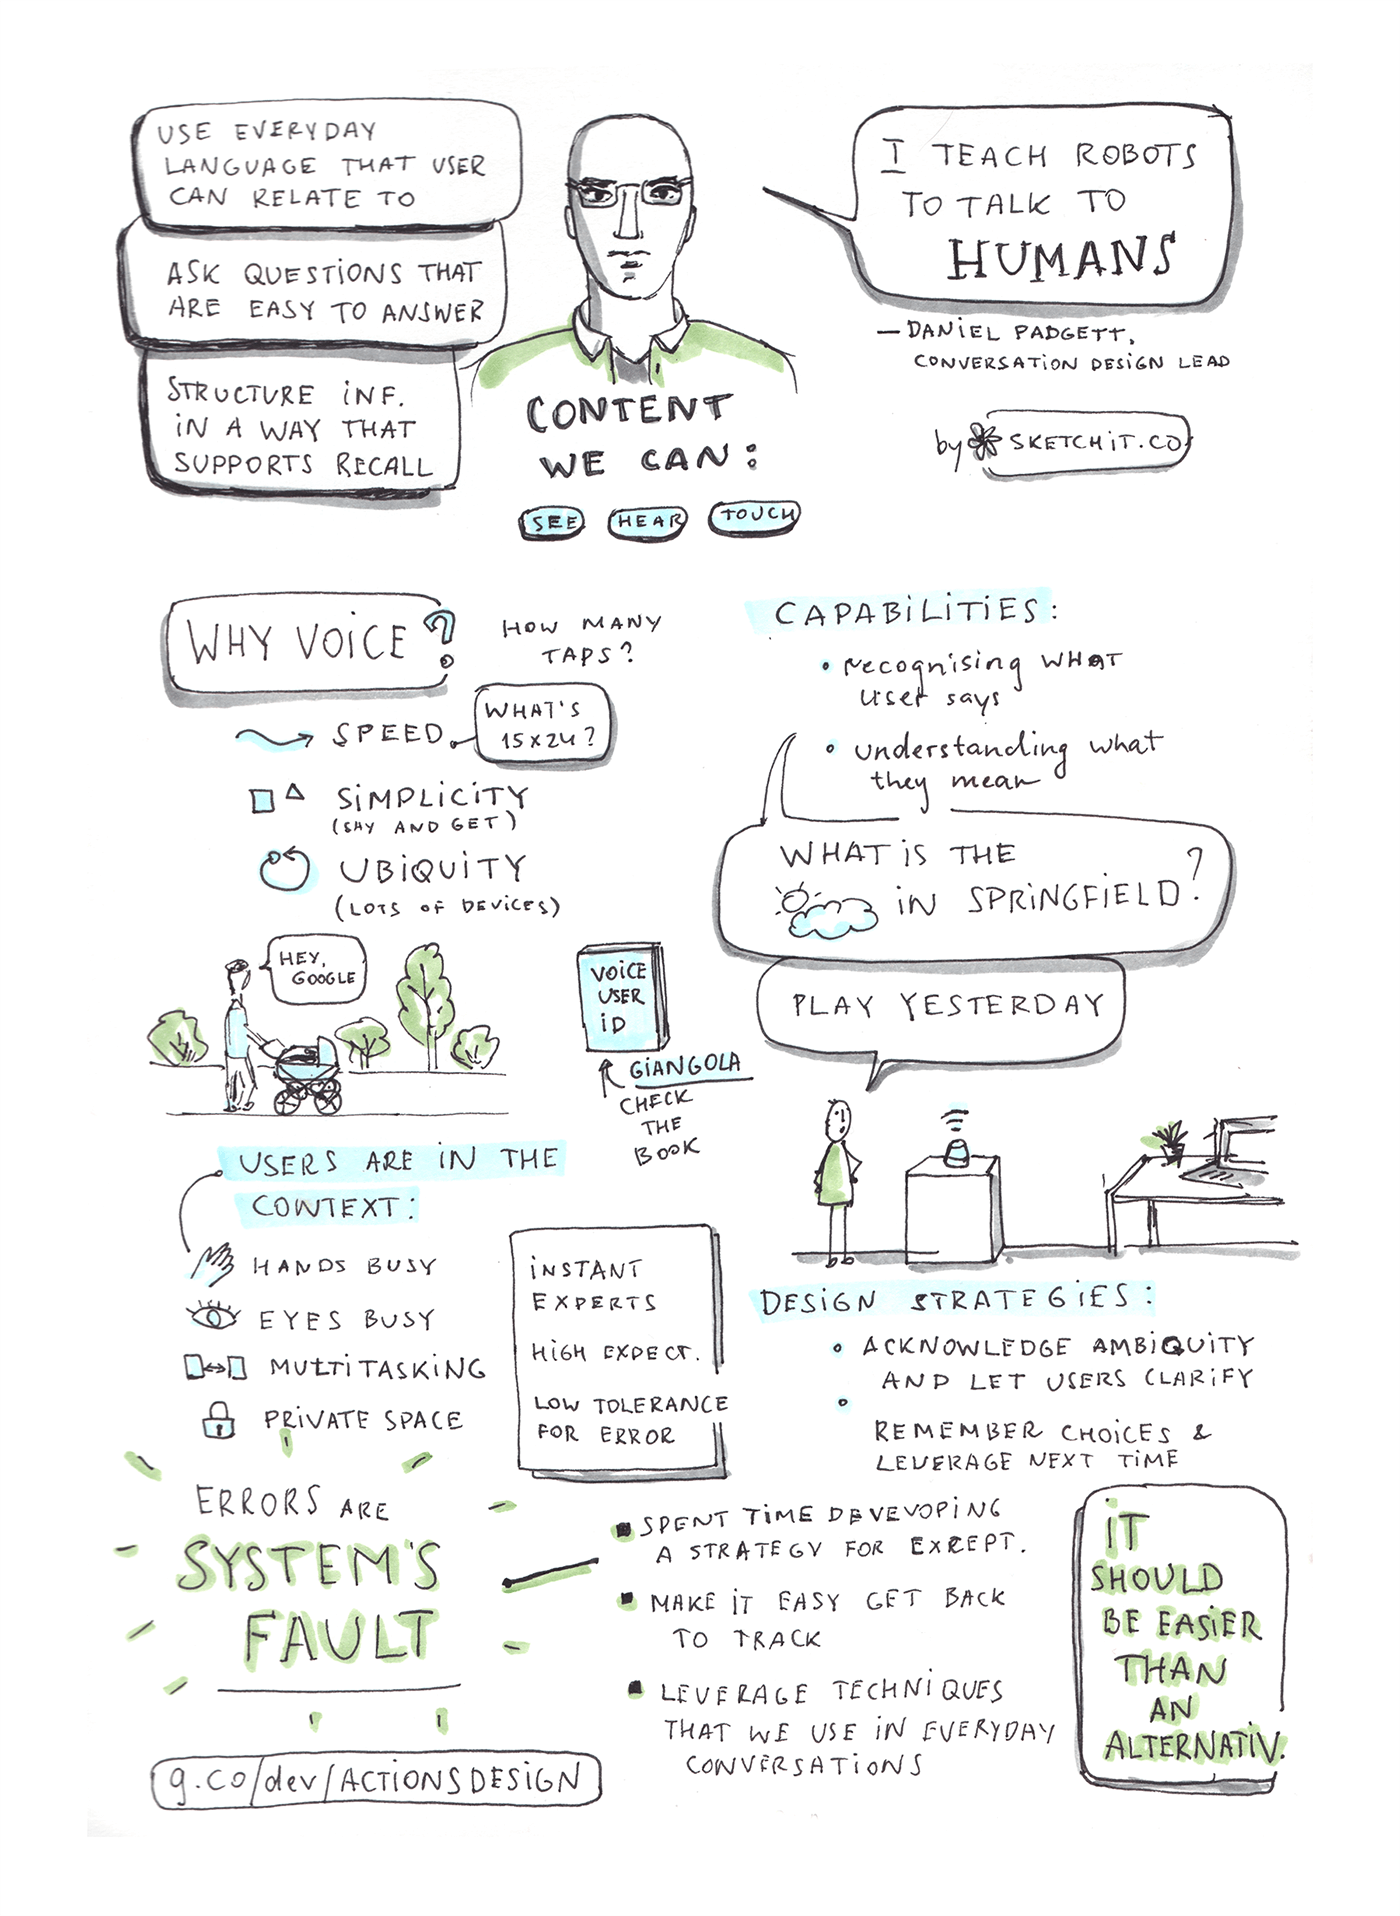 USE EVERYDAY
LANGUAGE THAT USER
CAN RELATE TO
ASK QUESTIONS THAT
ARE EASY TO ANSWER
STRUCTURE INF.
IN A WAY THAT
SUPPORTS RECALL
I TEACH ROBOTS
TO TALK TO
HUMANS
— DANIEL PADGETT,
CONVERSATION DESIGN LEAD
by SKETCHIT.CO
CONTENT
WE CAN:
SEE HEAR TOUCH
WHY VOICE?
HOW MANY
TAPS?
SPEED
WHAT'S
15x24?
SIMPLICITY
(SAY AND GET)
UBIQUITY
(LOTS OF DEVICES)
HEY,
GOOGLE
VOICE
USER
ID
GIANGOLA
CHECK
THE
BOOK
CAPABILITIES:
• recognising WHAT
user says
• understanding what
they mean
WHAT IS THE
IN SPRINGFIELD?
PLAY YESTERDAY
USERS ARE IN THE
CONTEXT:
HANDS BUSY
EYES BUSY
MULTITASKING
PRIVATE SPACE
INSTANT
EXPERTS
HIGH EXPECT.
LOW TOLERANCE
FOR ERROR
DESIGN STRATEGIES:
• ACKNOWLEDGE AMBIQUITY
AND LET USERS CLARIFY
•
REMEMBER CHOICES &
LEVERAGE NEXT TIME
ERRORS ARE
SYSTEM'S
FAULT
SPENT TIME DEVEVOPING
A STRATEGY FOR EXCEPT.
MAKE IT EASY GET BACK
TO TRACK
LEVERAGE TECHNIQUES
THAT WE USE IN EVERYDAY
CONVERSATIONS
IT
SHOULD
BE EASIER
THAN
AN
ALTERNATIV.
g.co/dev/ACTIONSDESIGN